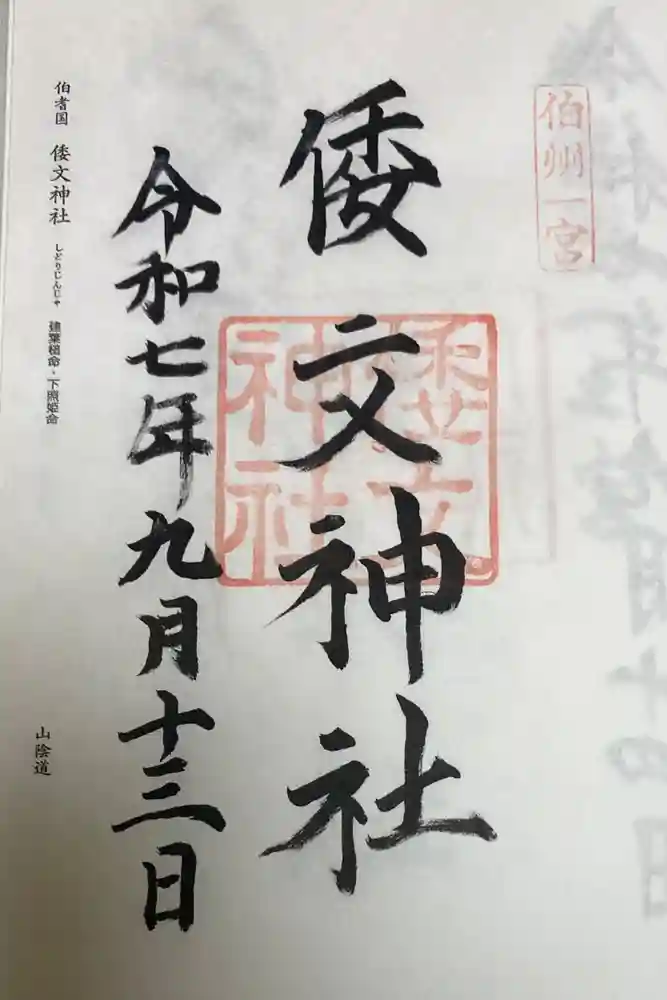 伯州一宮
倭文神社
倭文神社
令和七年九月十三日
伯耆国 倭文神社 しとりじんじゃ 建葉槌命・下照姫命
山陰道